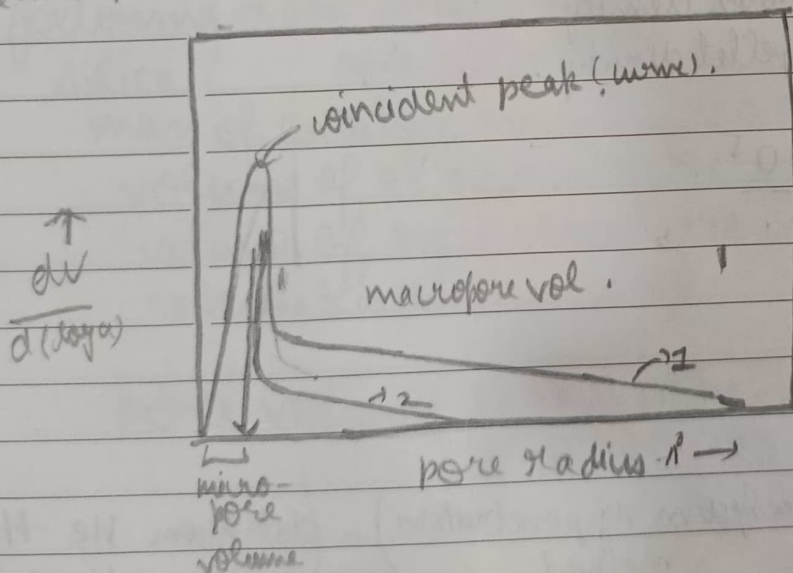 coincident peak (
↑
dV
d(log a)
macropore vol.
1
2
pore radius →
micro-
pore
volume